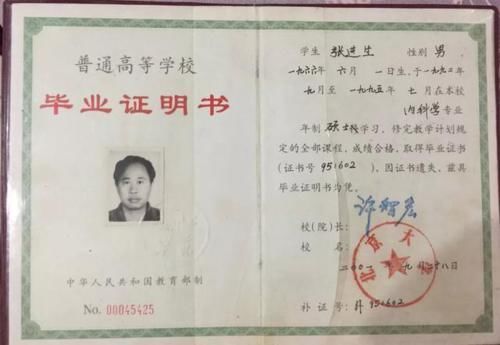 普通高等学校
毕业证明书
中华人民共和国教育部制
No. 00045425
学生 张进生 性别 男，
一九六六年 六月 一日生，于一九九二年
九月至 一九九五年 七月在本校
内科学专业
年制硕士学习，修完教学计划规
定的全部课程，成绩合格，取得毕业证书
（证书号 951602），因证书遗失、兹具
毕业证明书为凭。
校（院）长：
校名：
北京大
二〇〇一年九月二十八日
补证号： 951602